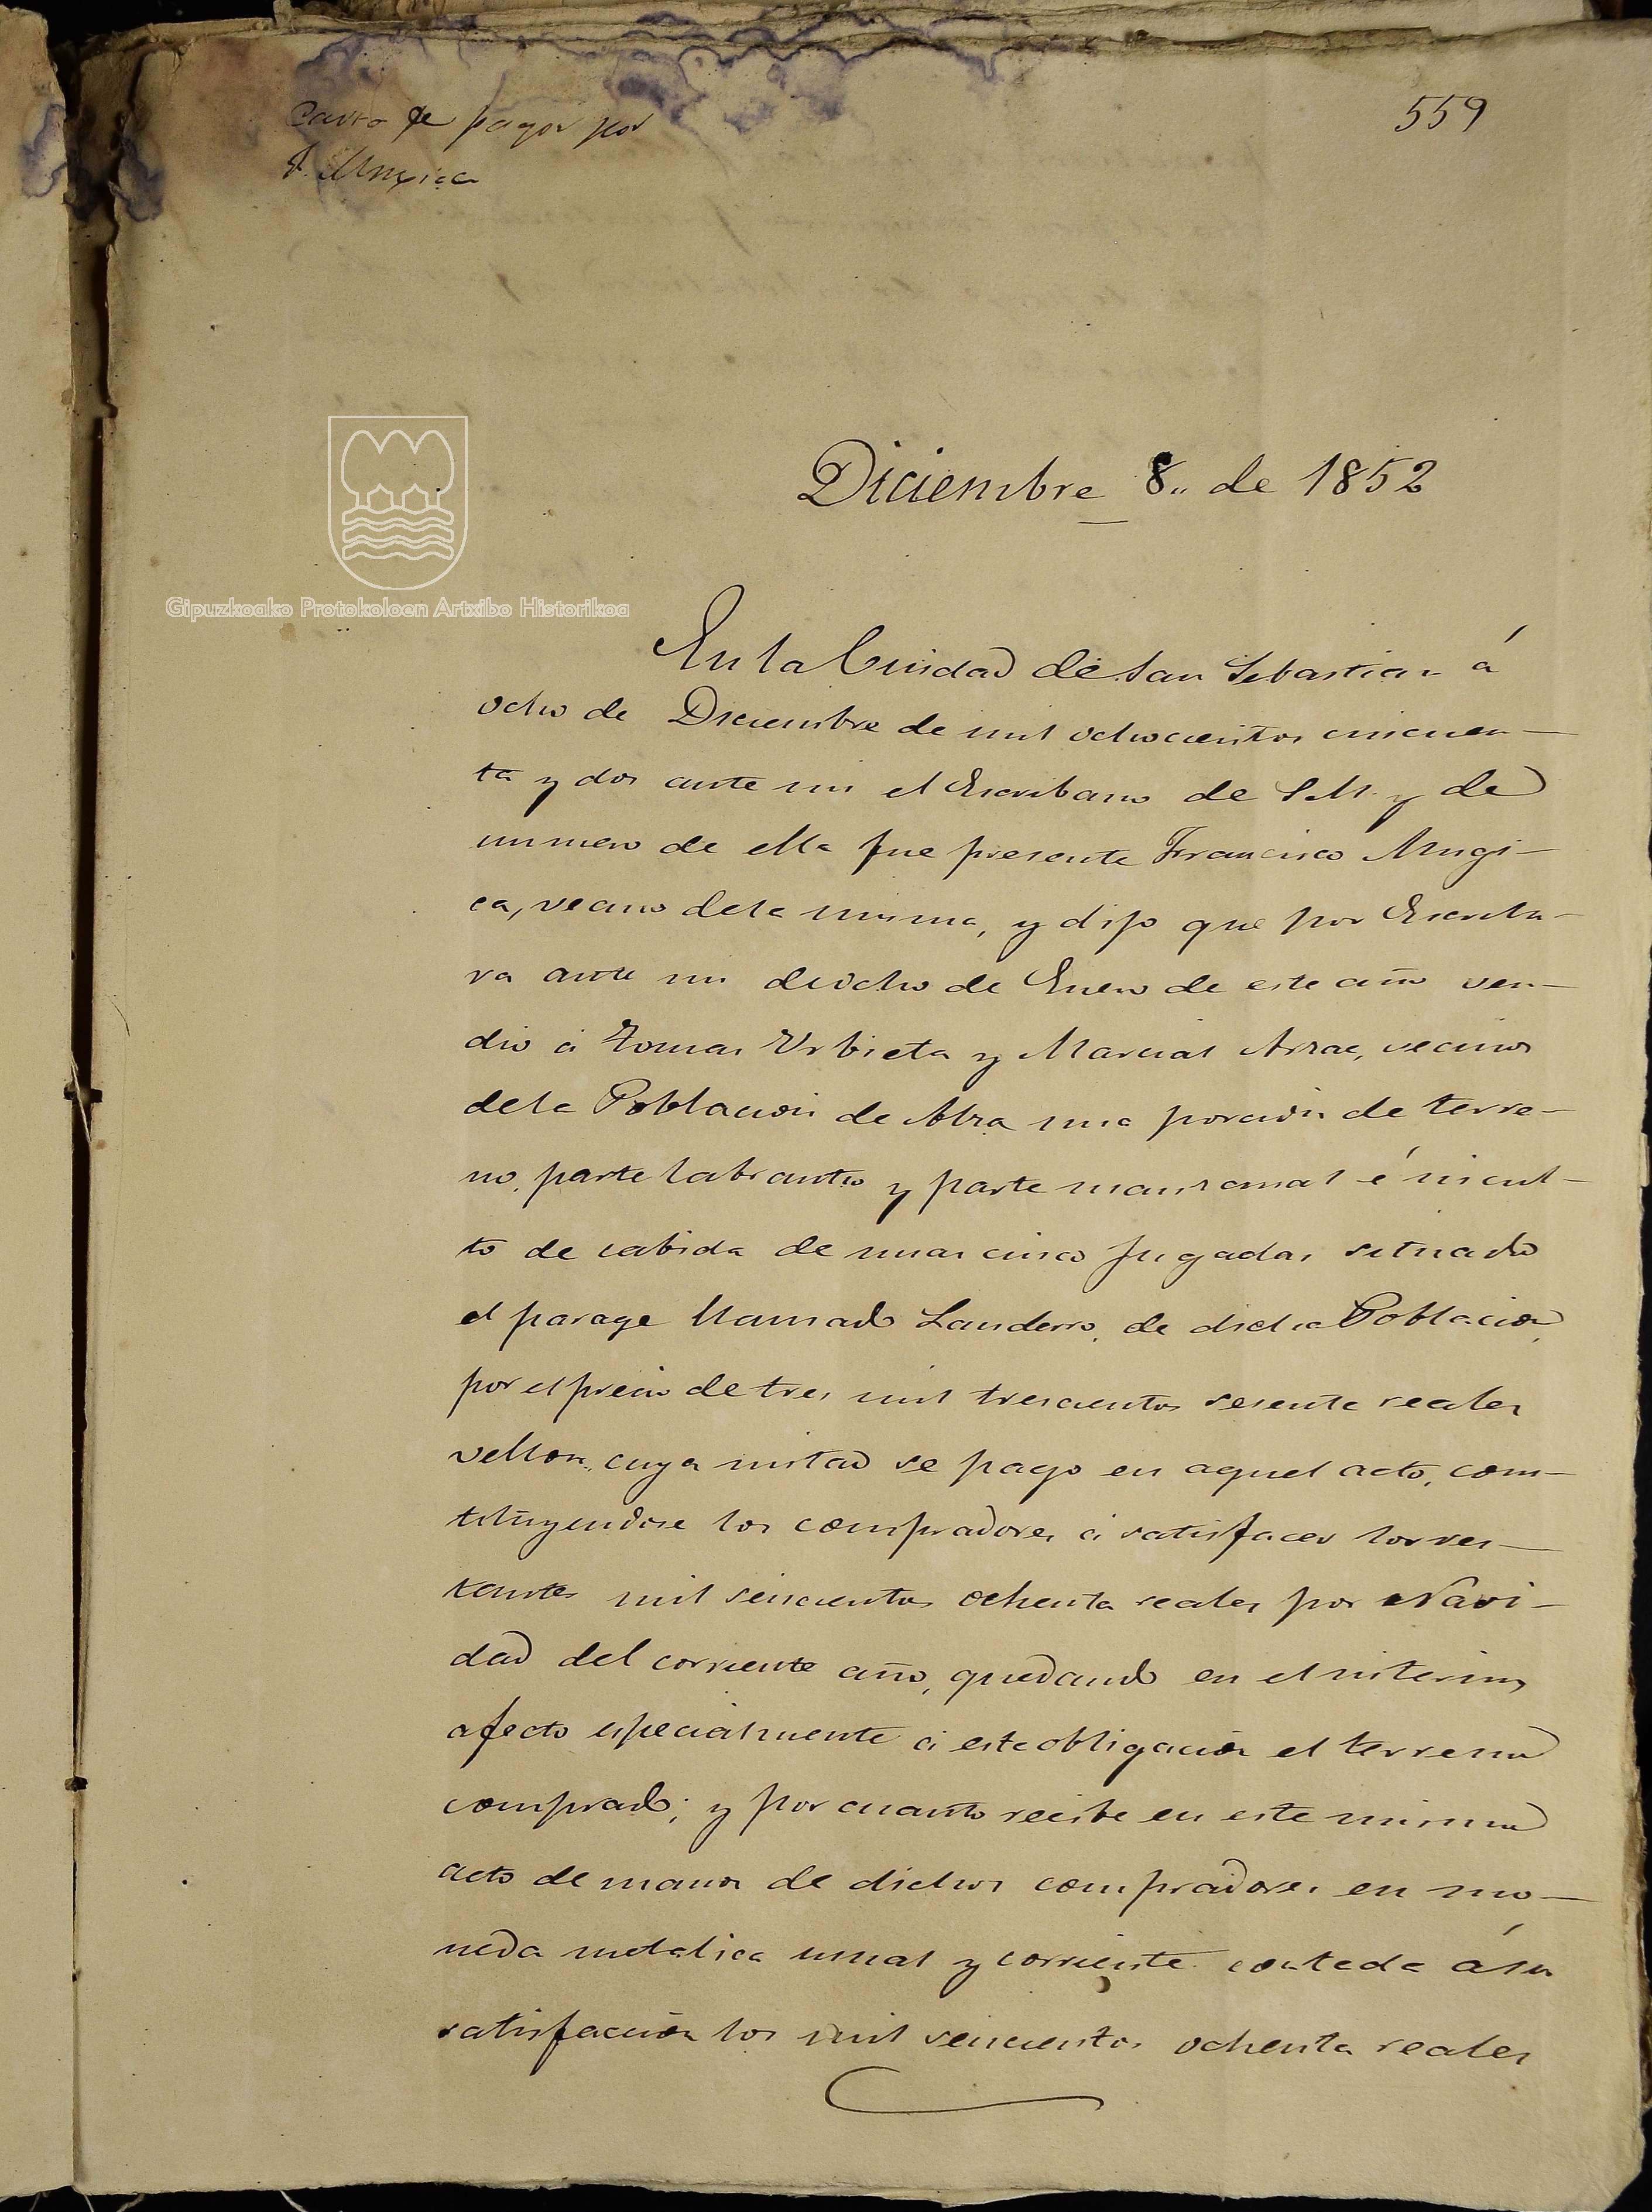 Carta de pago por
F. Mugica
559
Diciembre 8,, de 1852
Gipuzkoako Protokoloen Artxibo Historikoa
En la Ciudad de San Sebastian á
ocho de Diciembre de mil ochocientos cincuen-
ta y dos ante mi el Escribano de S.M. y de
numero de ella fue presente Francisco Mugi-
ca, vecino dela misma, y dijo que por Escritu-
ra ante mi de ocho de Enero de este año ven-
dio á Tomas Urbieta y Marcial Arzac, vecinos
dela Poblacion de Alza una porcion de terre-
no, parte labrantio y parte manzanal é incul-
to de cabida de unas cinco jugadas situado
el parage llamado Landerro, de dicha Poblacion,
por el precio de tres mil trescientos sesenta reales
vellon, cuya mitad se pago en aquel acto, cons-
tituyendose los compradores á satisfacer los res-
tantes mil seiscientos ochenta reales por Navi-
dad del corriente año, quedando en el interin
afecto especialmente á esta obligacion el terreno
comprado; y por cuanto recibe en este mismo
acto de manos de dichos compradores en mo-
neda metalica usual y corriente contada á su
satisfaccion los mil seiscientos ochenta reales